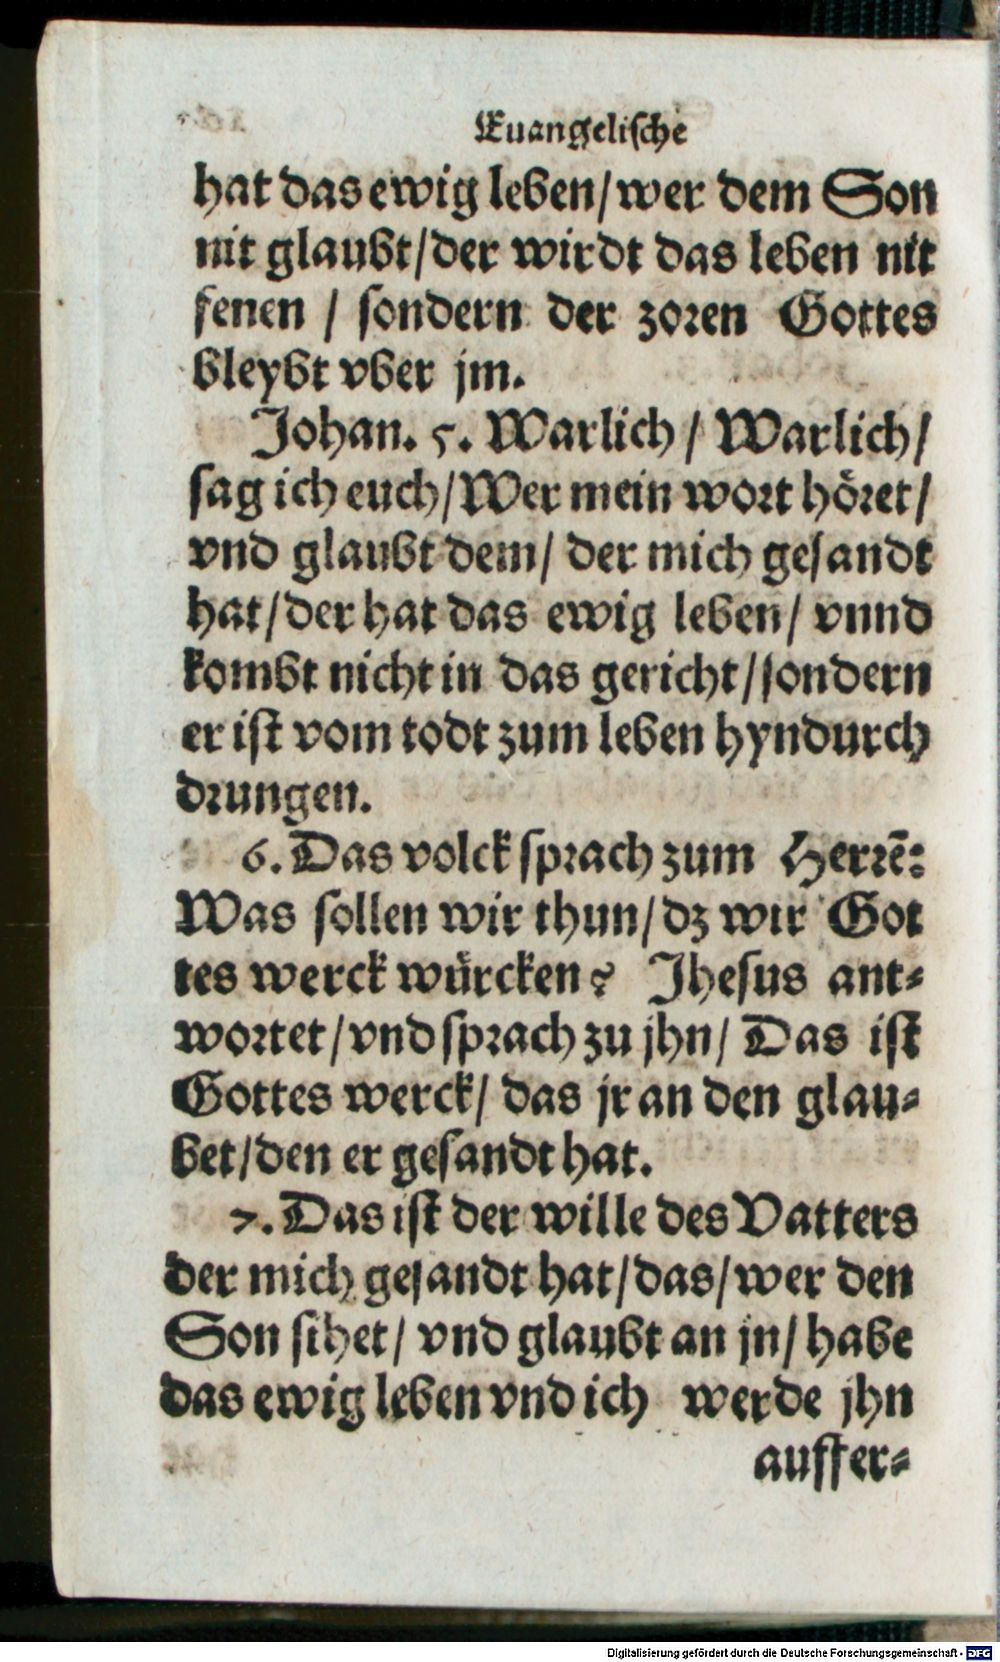 Euangelische
hat das ewig leben/wer dem Son
nit glaubt/der wirdt das leben nit
sehen / sondern der zoren Gottes
bleybt vber jm.
Johan. 5. Warlich / Warlich/
sag ich euch/Wer mein wort höret/
vnd glaubt dem/ der mich gesandt
hat/der hat das ewig leben/ vnnd
kombt nicht in das gericht/sondern
er ist vom todt zum leben hyndurch
drungen.
6. Das volck sprach zum Herrē:
Was sollen wir thun/dz wir Got
tes werck würcken? Jhesus ant⸗
wortet/vnd sprach zu jhn/ Das ist
Gottes werck/ das jr an den glau⸗
bet/den er gesandt hat.
7. Das ist der wille des Vatters
der mich gesandt hat/das/wer den
Son sihet/ vnd glaubt an jn/habe
das ewig leben vnd ich werde jhn
auffer⸗
Digitalisierung gefördert durch die Deutsche Forschungsgemeinschaft - DFG